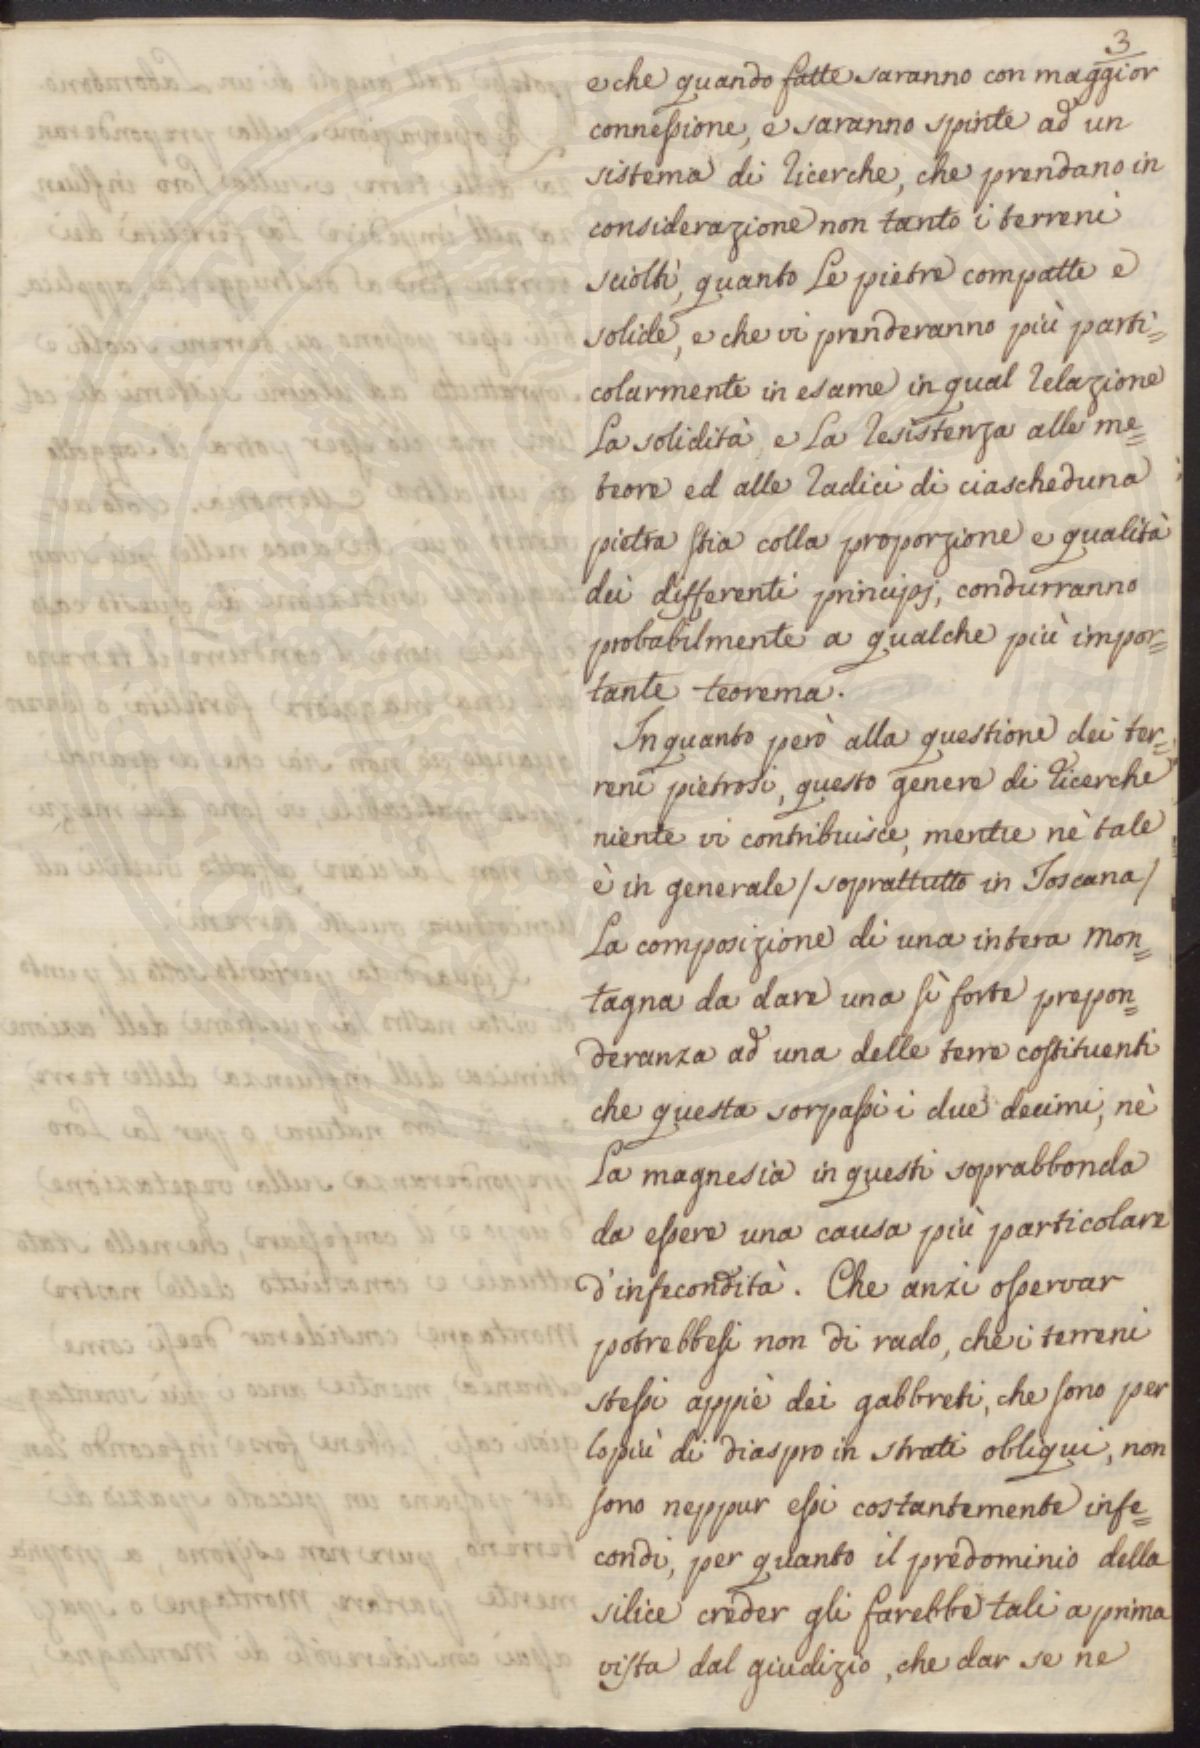 3
e che quando fatte saranno con maggior
connessione, e saranno spinte ad un
sistema di ricerche, che prendano in
considerazione non tanto i terreni
sciolti, quanto le pietre compatte e
solide, e che vi prenderanno più parti=
colarmente in esame in qual relazione
la solidità, e la resistenza alle me=
teore ed alle radici di ciascheduna
pietra stia colla proporzione e qualità
dei differenti principj, condurranno
probabilmente a qualche più impor=
tante teorema.
In quanto però alla questione dei ter=
reni pietrosi, questo genere di ricerche
niente vi contribuisce, mentre nè tale
è in generale / soprattutto in Toscana /
la composizione di una intera mon=
tagna da dare una sì forte prepon=
deranza ad una delle terre costituenti
che questa sorpassi i due decimi, nè
la magnesia in questi soprabbonda
da essere una causa più particolare
d'infecondità. Che anzi osservar
potrebbesi non di rado, che i terreni
stessi appiè dei gabbreti, che sono per
lopiù di diaspro in strati obliqui, non
sono neppur essi costantemente infe=
condi, per quanto il predominio della
silice creder gli farebbe tali a prima
vista dal giudizio, che dar se ne